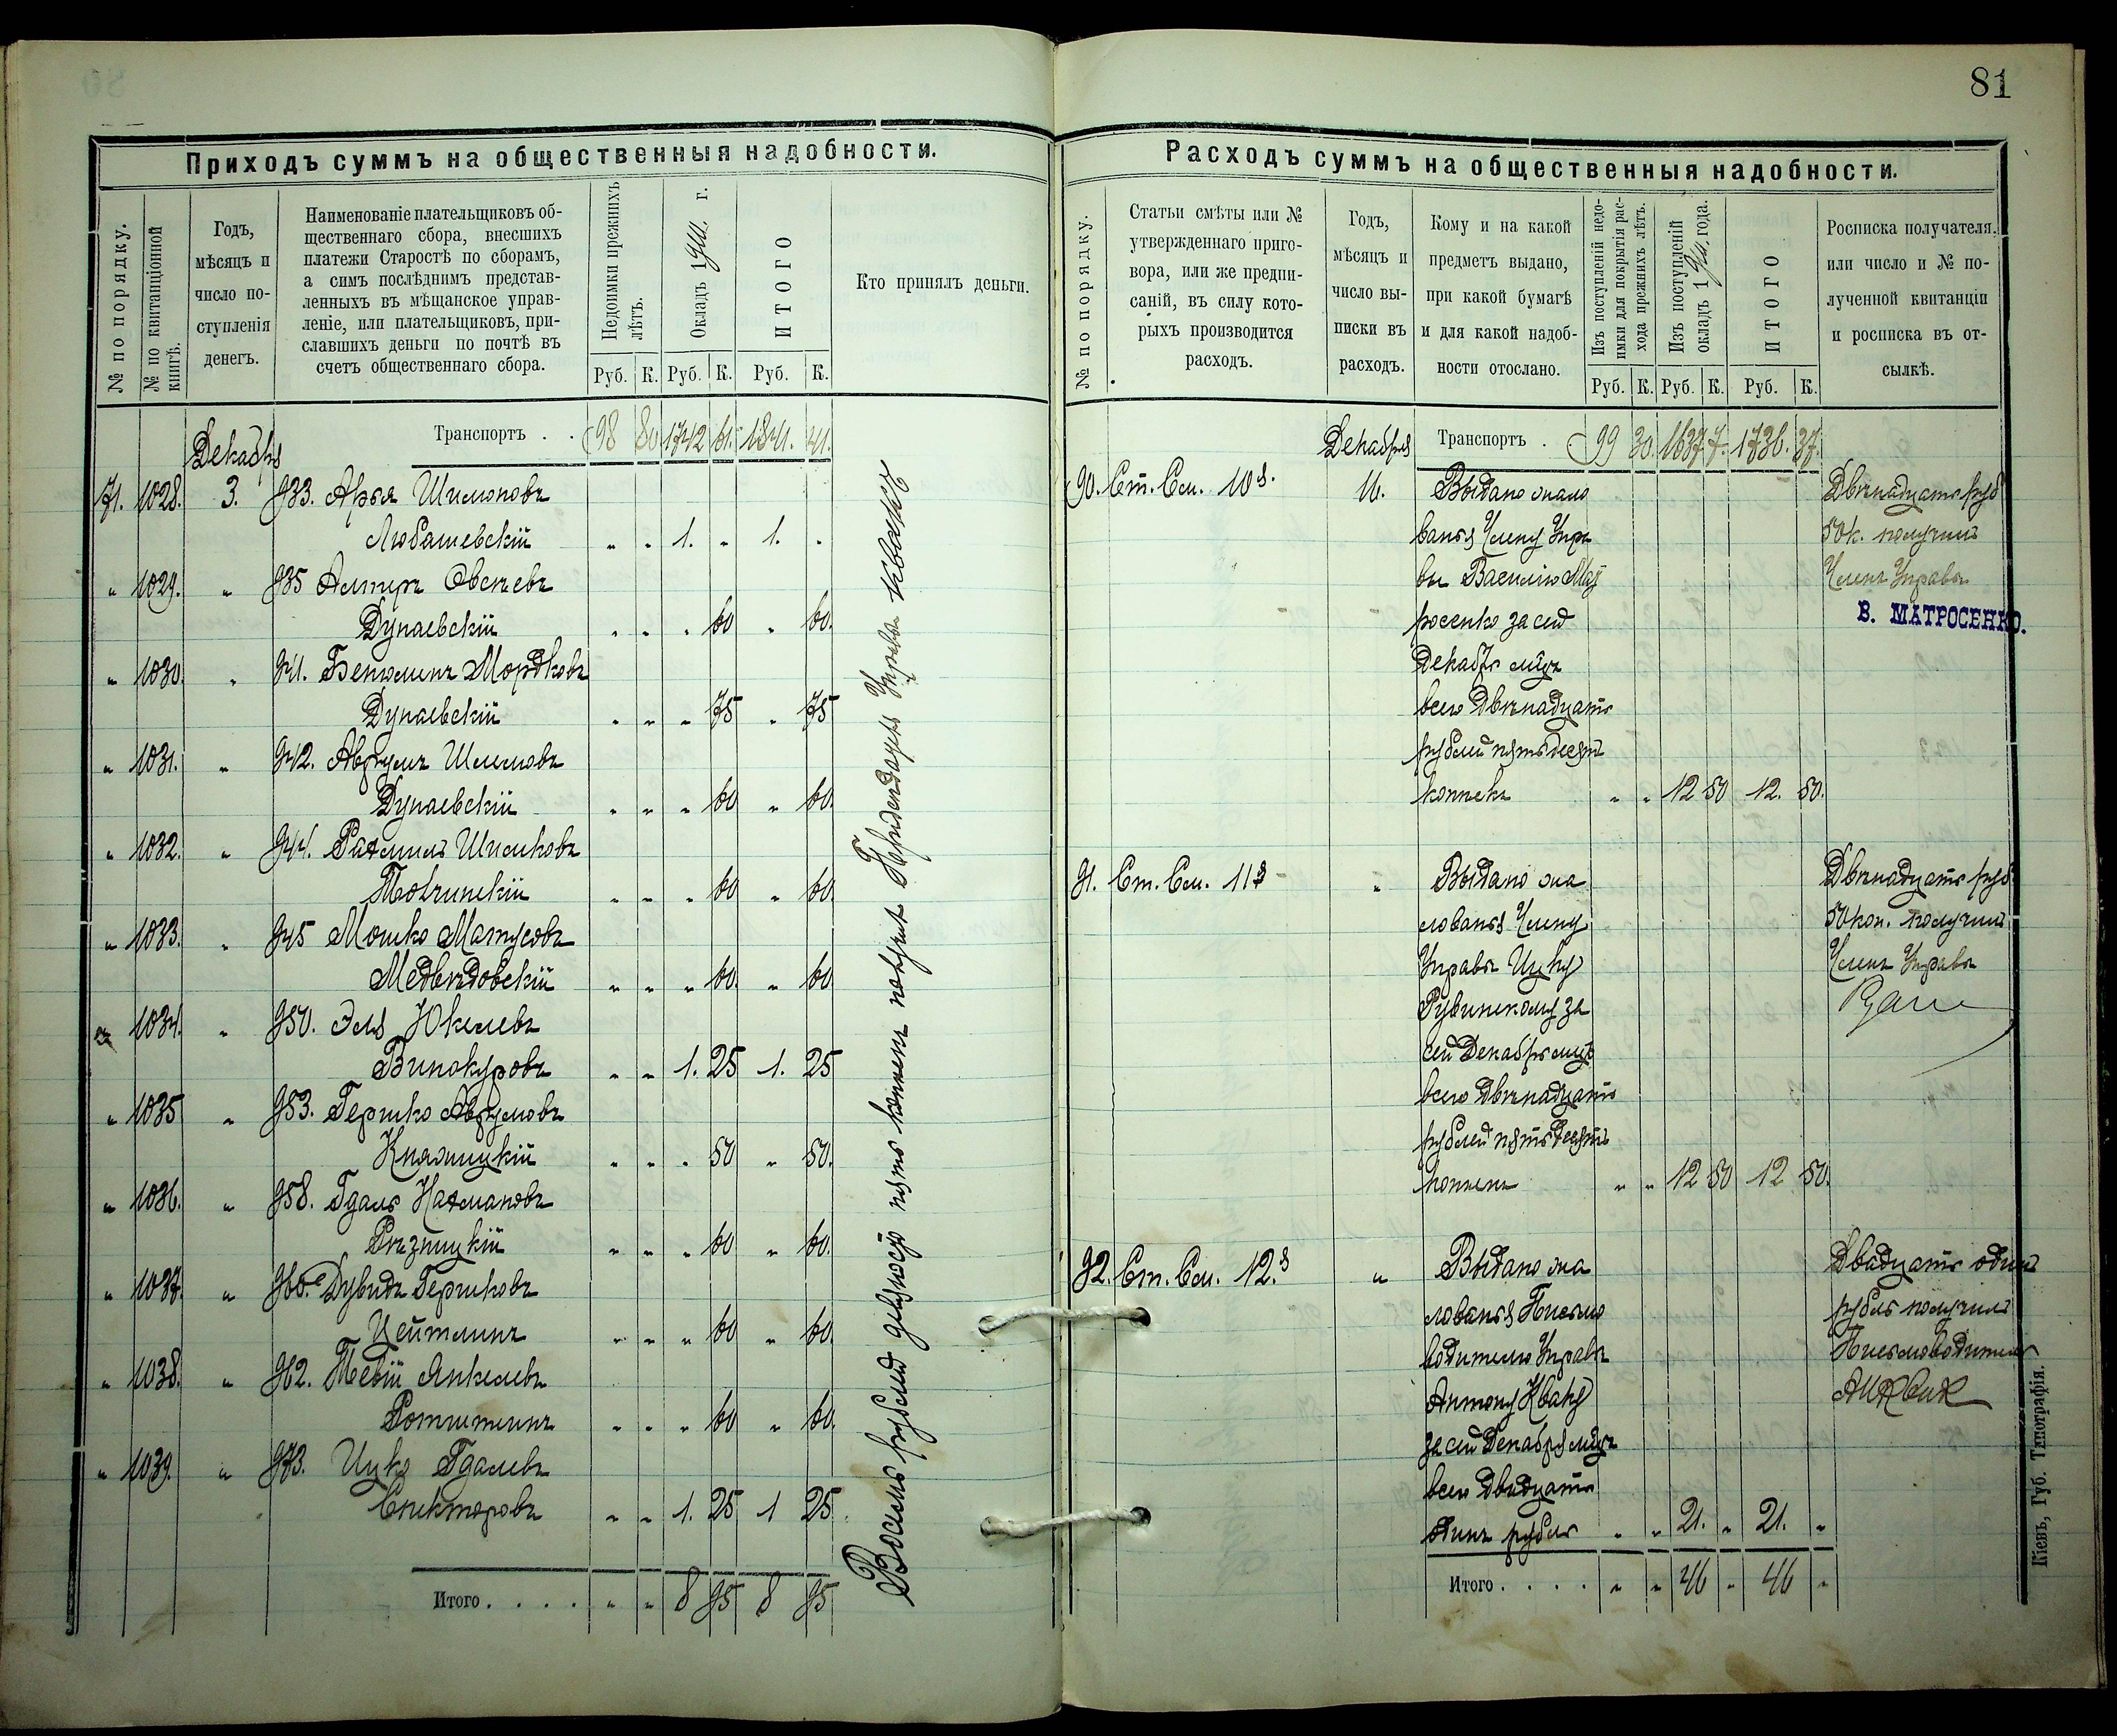 81
Приходъ суммъ на общественныя надобности.
№ по порядку.
№ по квитанціонной книгѣ.
Годъ,
мѣсяцъ и
число по-
ступленія
денегъ.
Наименованіе плательщиковъ об-
щественнаго сбора, внесшихъ
платежи Старостѣ по сборамъ,
а симъ послѣднимъ представ-
ленныхъ въ мѣщанское управ-
леніе, или плательщиковъ, при-
славшихъ деньги по почтѣ въ
счетъ общественнаго сбора.
Недоимки прежнихъ лѣтъ.
Окладъ 1911 г.
ИТОГО
Руб. К. Руб. К. Руб. К.
Кто принялъ деньги.
Декабрь
Транспортъ . . 98 80 1742 61. 1841. 41.
71. 1028. 3. 933. Арья Шимоновъ
Любашевскій " " 1. " 1. "
" 1029. " 935 Алтеръ Овсѣевъ
Дунаевскій " " " 60 " 60.
" 1030. " 941. Беньминъ Мордковъ
Дунаевскій " " " 75 " 75
" 1031. " 942. Аврумъ Шлемовъ
Дунаевскій " " " 60 " 60.
" 1032. " 944. Рахмиль Шимковъ
" " " 60 " 60.
" 1033. " 945 Мошко Матусовъ
Медвѣдовскій " " " 60. " 60
" 1034. " 950. Эль Юкелевъ
Винокуровъ " " 1. 25 1. 25
" 1035 " 953. Гершко Аврумовъ
Княжицкій " " " 50 " 50.
" 1036. " 958. Гдаль Нахмановъ
Рѣзницкій " " " 60 " 60.
" 1037. " 960. Дувидъ Гершковъ
Цейтлинъ " " " 60 " 60.
" 1038. " 962. Тевій Янкелевъ
Ротштинъ " " " 60 " 60.
" 1039. " 973. Ицко Гдалевъ
Спекторовъ " " 1. 25 1 25
Итого . . . . " " 8 95 8 95
Восемь рублей девяносто пять копѣекъ Управы
Расходъ суммъ на общественныя надобности.
№ по порядку.
Статьи смѣты или №
утвержденнаго приго-
вора, или же предпи-
саній, въ силу кото-
рыхъ производится
расходъ.
Годъ,
мѣсяцъ и
число вы-
писки въ
расходъ.
Кому и на какой
предметъ выдано,
при какой бумагѣ
и для какой надоб-
ности отослано.
Изъ поступленій недо-
имки для покрытія рас-
хода прежнихъ лѣтъ.
Изъ поступленій
окладъ 1911 года.
ИТОГО
Руб. К. Руб. К. Руб. К.
Росписка получателя.
или число и № по-
лученной квитанціи
и росписка въ от-
сылкѣ.
Декабря Транспортъ . 99 30. 1637 7. 1736. 37.
90. Ст. См. 10 16. Выдано жало
ванья Члену Упра
вы Василію Мат
росенко за сей
Декабрь мцъ
всего двѣнадцать
рублей пятьдесятъ
копѣекъ " " 12 50 12. 50.
Двѣнадцать руб
50 к. получилъ
Членъ Управы
В. МАТРОСЕНКО.
91. Ст. См. 11 " Выдано жа
лованья Члену
Управы Ицку
Рувинскому за
сей Декабрь мцъ
всего двѣнадцать
рублей пятьдесятъ
копѣекъ " " 12 50 12 50.
Двѣнадцать руб
50 коп. получилъ
Членъ Управы
92. Ст. См. 12. " Выдано жа
лованья Письмо
водителю Управы
Антону Кваку
за сей Декабрь мцъ
всего двадцать
одинъ рубль " " 21. " 21. "
Двадцать одинъ
рубль получилъ
Письмоводитель
Итого . . . . " " 46 " 46 "
Кіевъ, Губ. Типографія.